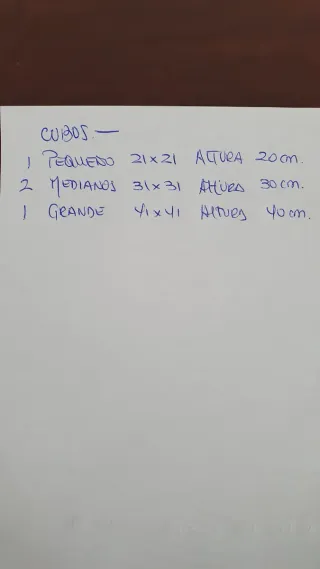 CUBOS.—
1 PEQUEÑO 21x21 ALTURA 20 cm.
2 MEDIANOS 31x31 ALTURA 30 cm.
1 GRANDE 41x41 ALTURA 40 cm.